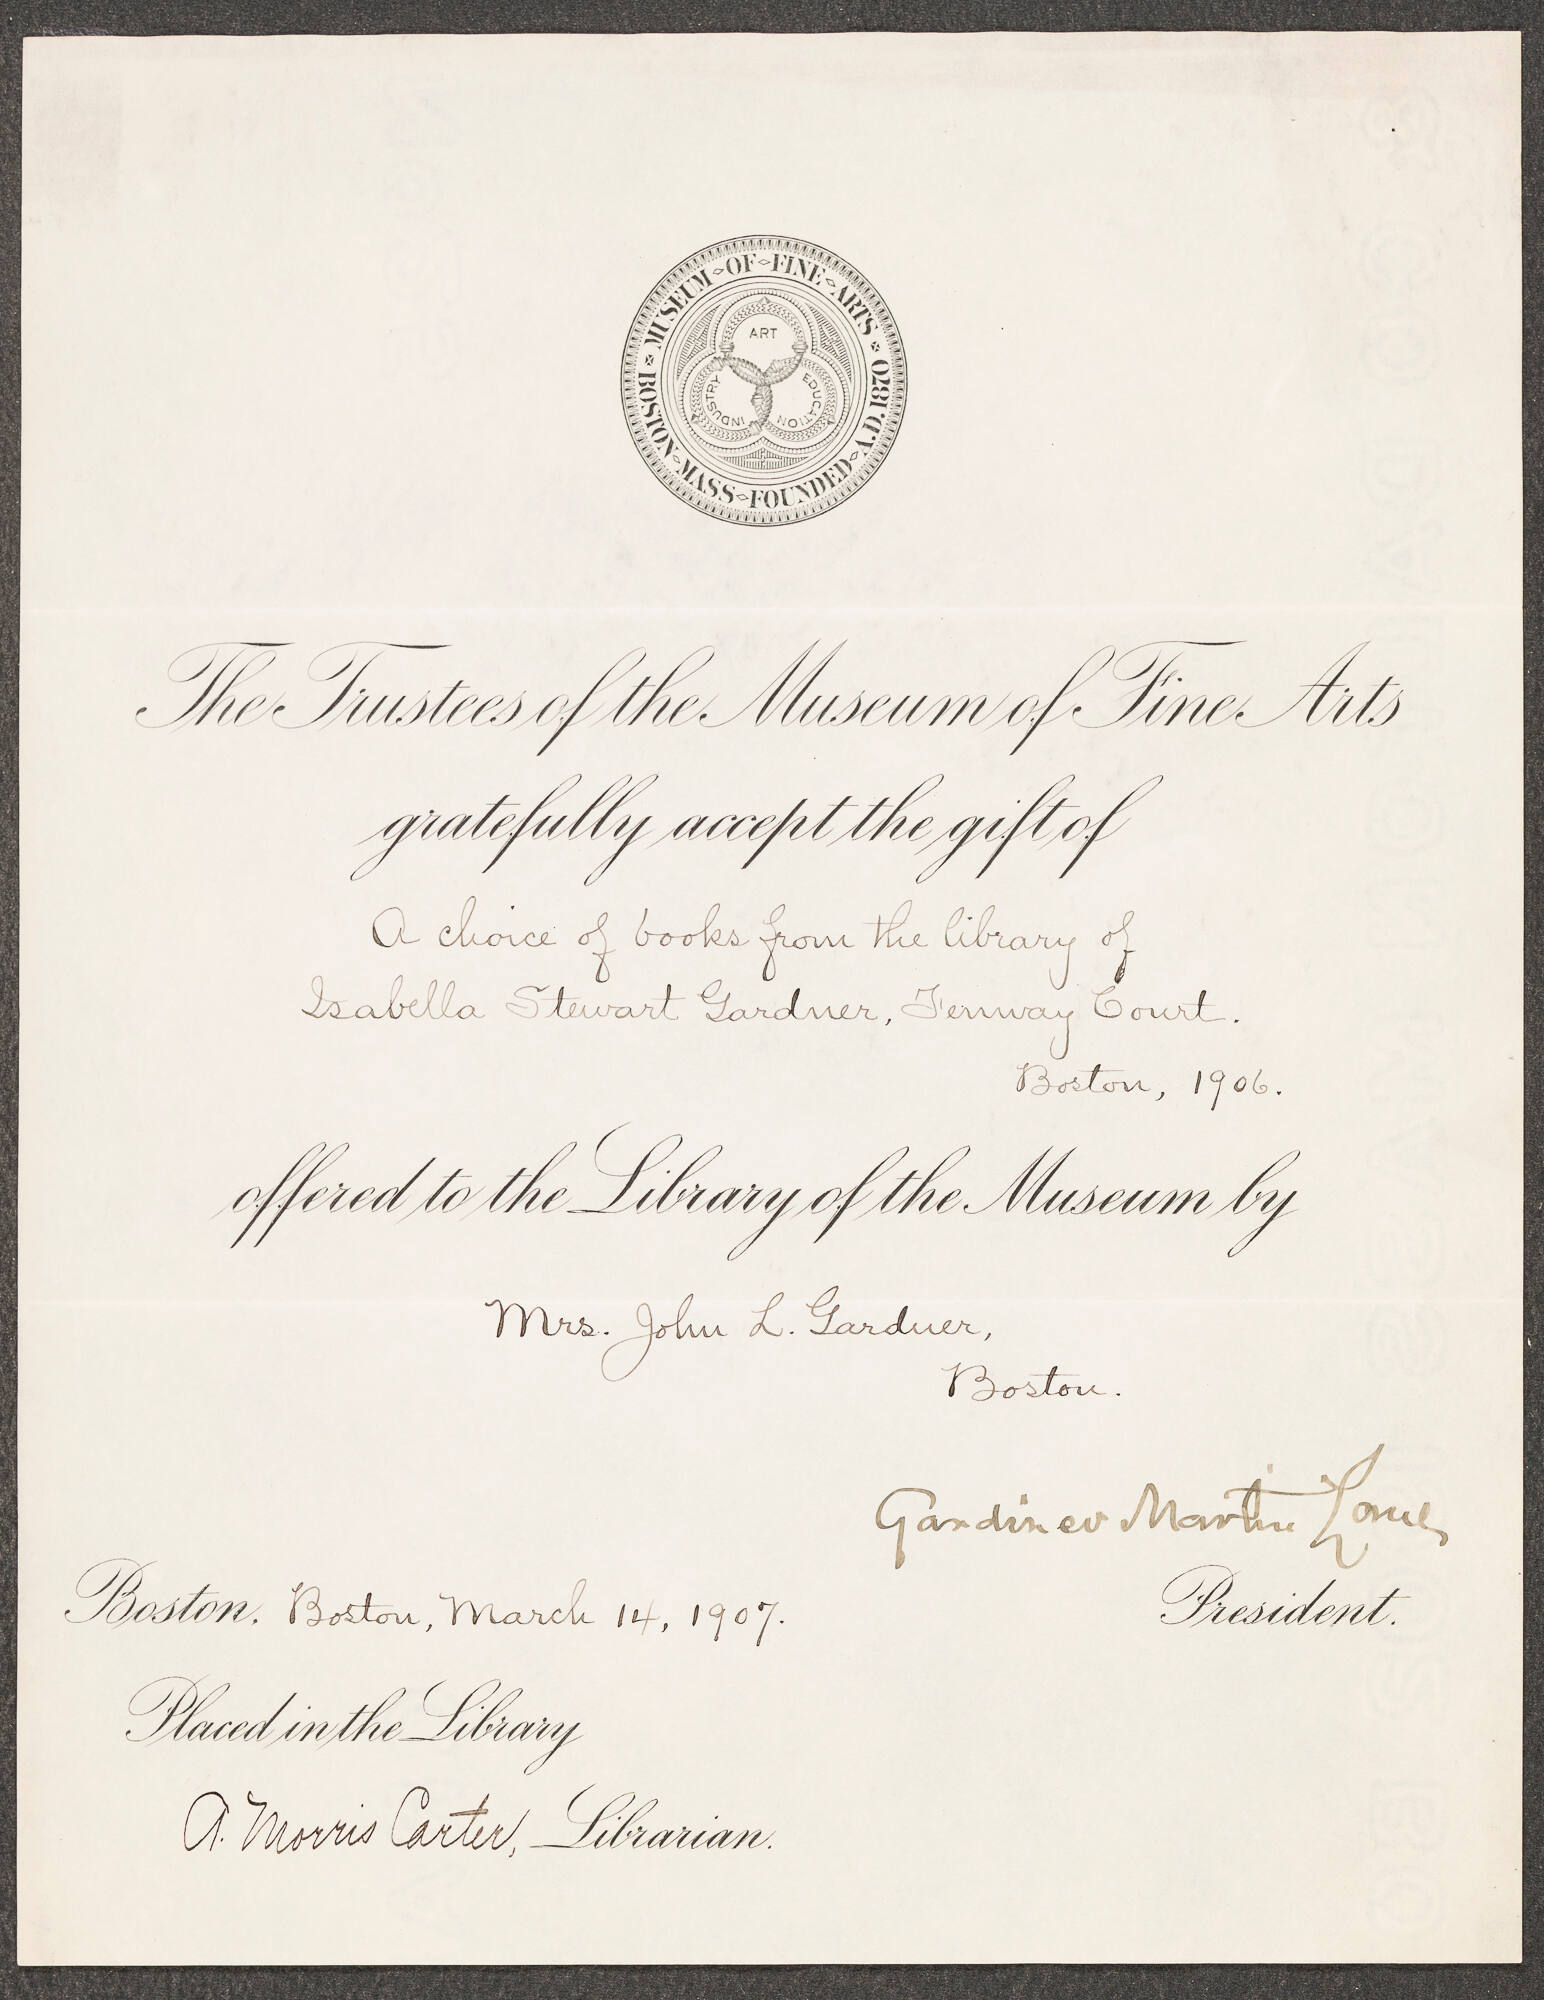 MUSEUM OF FINE ARTS
BOSTON MASS FOUNDED A.D. 1870
ART
INDUSTRY
EDUCATION
The Trustees of the Museum of Fine Arts
gratefully accept the gift of
A choice of books from the library of
Isabella Stewart Gardner, Fenway Court.
Boston, 1906.
offered to the Library of the Museum by
Mrs. John L. Gardner,
Boston.
Gardiner Martin Lane
President.
Boston. Boston, March 14, 1907.
Placed in the Library
A. Morris Carter, Librarian.